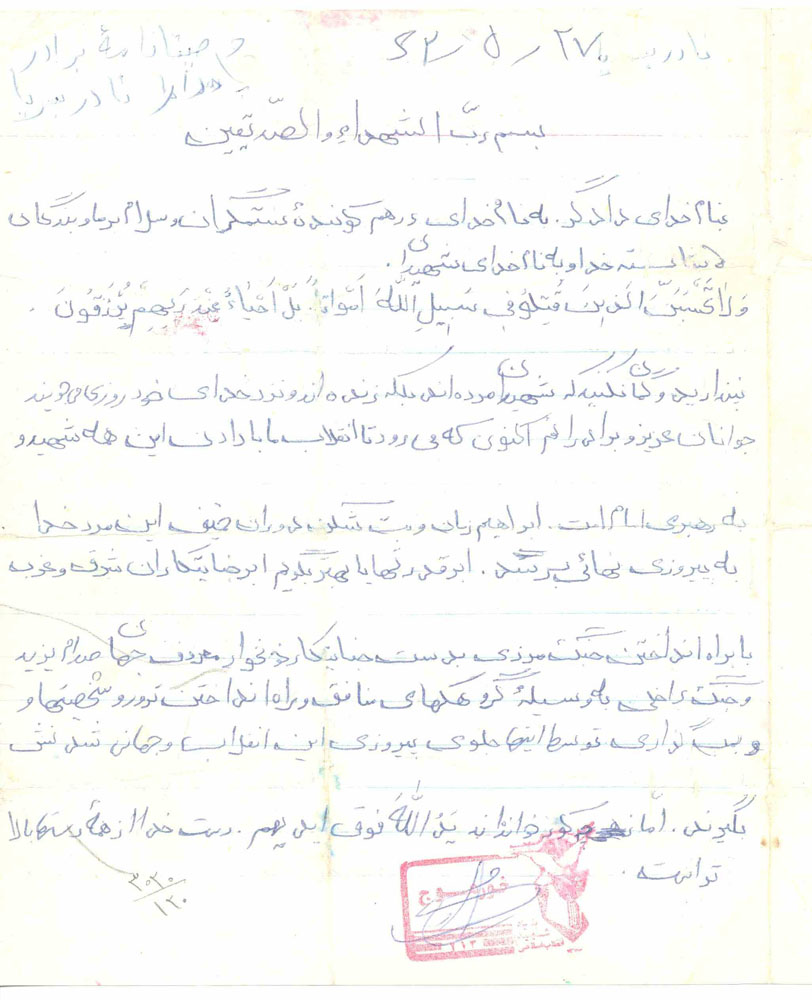 وصیتنامهٔ برادر
نادر
بسم ربّ الشهداء والصّدیقین
بنام خدای دادگر. به نام خدای درهم کوبندهٔ ستمگران و سلام بر ما و بندگان
شایسته خدا و به نام خدای شهیدان.
وَلاٰتَحْسَبَنَّ الَذینَ قُتِلوُ فی سَبیلِ اللّهَ اَمْواتاً بَلْ اَحْیٰاءٌ عِنْدَ رَبِهِمْ یُرْزَقُونَ.
نپندارید و گمان نکنید که شهیدان مرده اند بلکه زنده اند و نزد خدای خود روزی می خورند
جوانان عزیز و برادرانم اکنون که می رود تا انقلاب ما با دادن این همه شهید و
به رهبری امام امت. ابراهیم زمان و بت شکن دوران خمینی این مرد خدا
به پیروزی نهائی برسد. ابرقدرتها یا بهتر بگویم ابرجنایتکاران شرق و غرب
با براه انداختن جنگ مرزی بدست جنایتکار خونخوار معروف جهان صدام یزید
و جنگ داخلی به وسیلهٔ گروهکهای منافق و براه انداختن ترور شخصیتها و
بمب گذاری توسط اینها جلوی پیروزی این انقلاب و جهانی شدنش
بگیرند. امّا کور خوانده اند یَدُ اللّهَ فوق ایدیهم. دست خدا از همهٔ دستها بالا
تر است.
۳۰۳۰
۱۲۰
خورموج